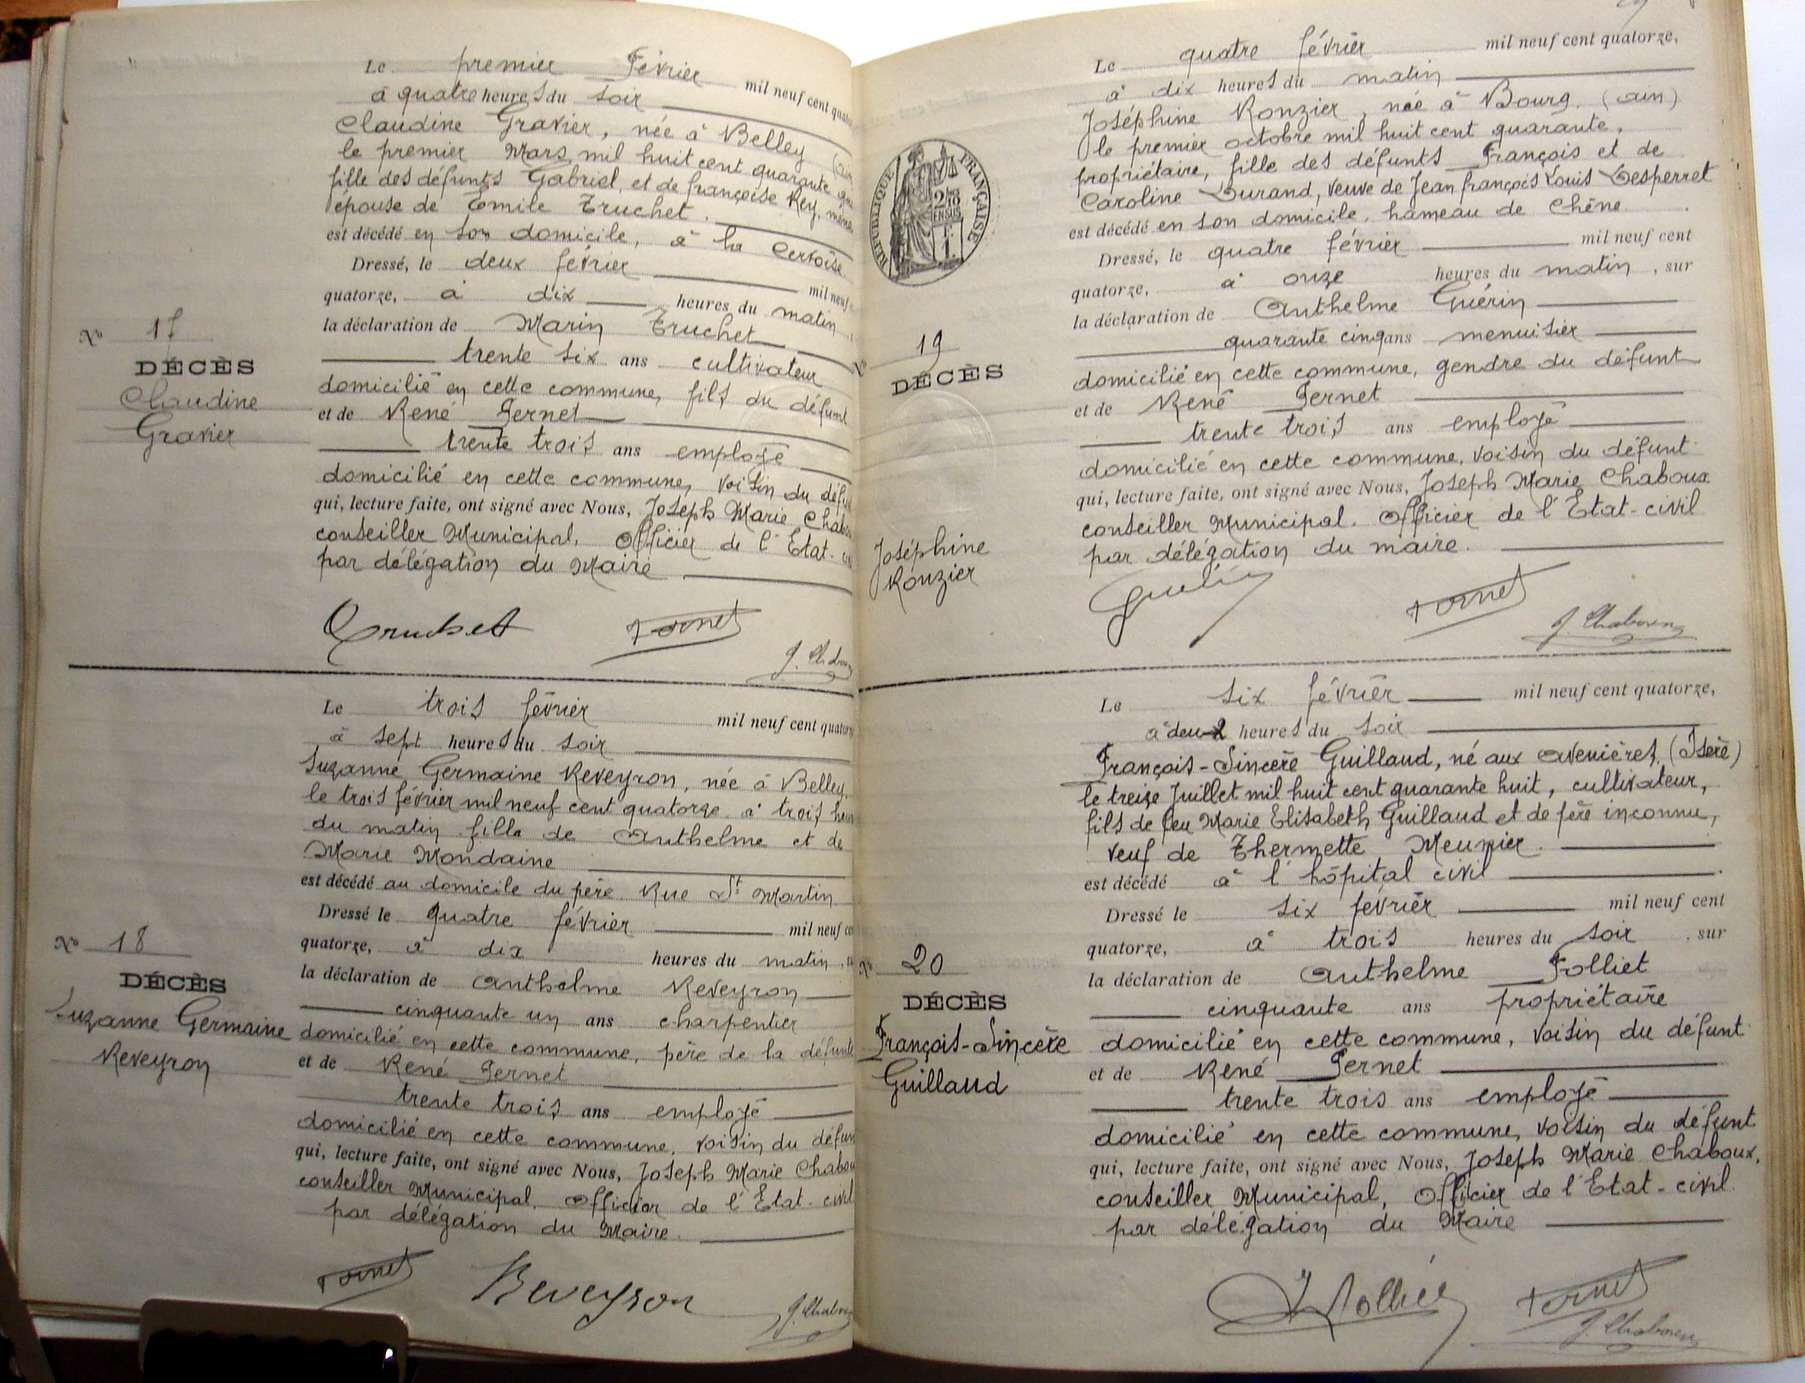 Le premier Février mil neuf cent
à quatre heures du soir
Claudine Gravier, née à Belley
le premier Mars mil huit cent quarante
fille des défunts Gabriel, et de françoise Rey,
épouse de Emile Truchet.
est décédé en son domicile, à la
Dressé, le deux février
quatorze, à dix heures du matin
la déclaration de Marin Truchet
trente six ans cultivateur
Nº 17
DÉCÈS
Claudine
Gravier
domicilié en cette commune, fils du défunt
et de René Fernet
trente trois ans employé
domicilié en cette commune, voisin du
qui, lecture faite, ont signé avec Nous, Joseph Marie
conseiller Municipal, Officier de l'Etat-
par délégation du Maire
Truchet Fernet J. Chaboux
Le trois février mil neuf cent
à sept heures du soir
Suzanne Germaine Reveyron, née à Belley,
le trois février mil neuf cent quatorze à trois
du matin fille de Anthelme et de
Marie Mondaine
est décédé au domicile du père Rue St Martin
Dressé le quatre février mil neuf
quatorze, à dix heures du matin
la déclaration de Anthelme Reveyron
cinquante un ans charpentier
Nº 18
DÉCÈS
Suzanne Germaine
Reveyron
domicilié en cette commune, père de la défunte
et de René Fernet
trente trois ans employé
domicilié en cette commune, voisin du
qui, lecture faite, ont signé avec Nous, Joseph Marie
conseiller Municipal, Officier de l'Etat-civil
par délégation du Maire.
Fernet Reveyron J. Chaboux
Le quatre février mil neuf cent quatorze,
à dix heures du matin
Joséphine Ronzier, née à Bourg (ain)
le premier octobre mil huit cent quarante,
propriétaire, fille des défunts François et de
Caroline Durand, veuve de Jean françois Louis Lesperret
est décédé en son domicile, hameau de Chêne
RÉPUBLIQUE FRANÇAISE
Dressé, le quatre février mil neuf cent
quatorze, à onze heures du matin, sur
la déclaration de Anthelme Guérin
quarante cinq ans menuisier
Nº 19
DÉCÈS
Joséphine
Ronzier
domicilié en cette commune, gendre du défunt
et de René Fernet
trente trois ans employé
domicilié en cette commune, voisin du défunt
qui, lecture faite, ont signé avec Nous, Joseph Marie Chaboux
conseiller Municipal. Officier de l'Etat-civil
par délégation du maire.
Guérin Fernet J. Chaboux
Le six février mil neuf cent quatorze,
à deux heures du soir
François-Sincère Guillaud, né aux Avenières (Isère)
le treize Juillet mil huit cent quarante huit, cultivateur,
fils de feu Marie Elisabeth Guillaud et de père inconnu,
veuf de Thermette Meunier.
est décédé à l'hôpital civil
Dressé le six février mil neuf cent
quatorze, à trois heures du soir, sur
la déclaration de Anthelme Folliet
cinquante ans propriétaire
Nº 20
DÉCÈS
François-Sincère
Guillaud
domicilié en cette commune, voisin du défunt
et de René Fernet
trente trois ans employé
domicilié en cette commune, voisin du défunt
qui, lecture faite, ont signé avec Nous, Joseph Marie Chaboux,
conseiller Municipal, Officier de l'Etat-civil
par délégation du Maire
Folliet Fernet
J. Chaboux